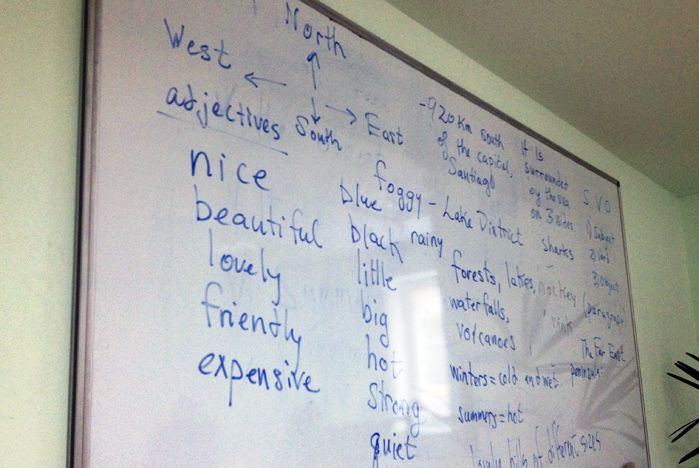 North
West
East
South
adjectives
nice
beautiful
lovely
friendly
expensive
blue
black
little
big
hot
strong
quiet
foggy - Lake District
rainy
-920 km south
of the capital,
Santiago
It is
surrounded
by the sea
on 3 sides
sharks
forests, lakes,
waterfalls,
volcanoes
winters=cold and wet
summers=hot
lovely hills of different sizes
S V O
1) Subject
2) Verb
3) Object
The Far East
peninsula: